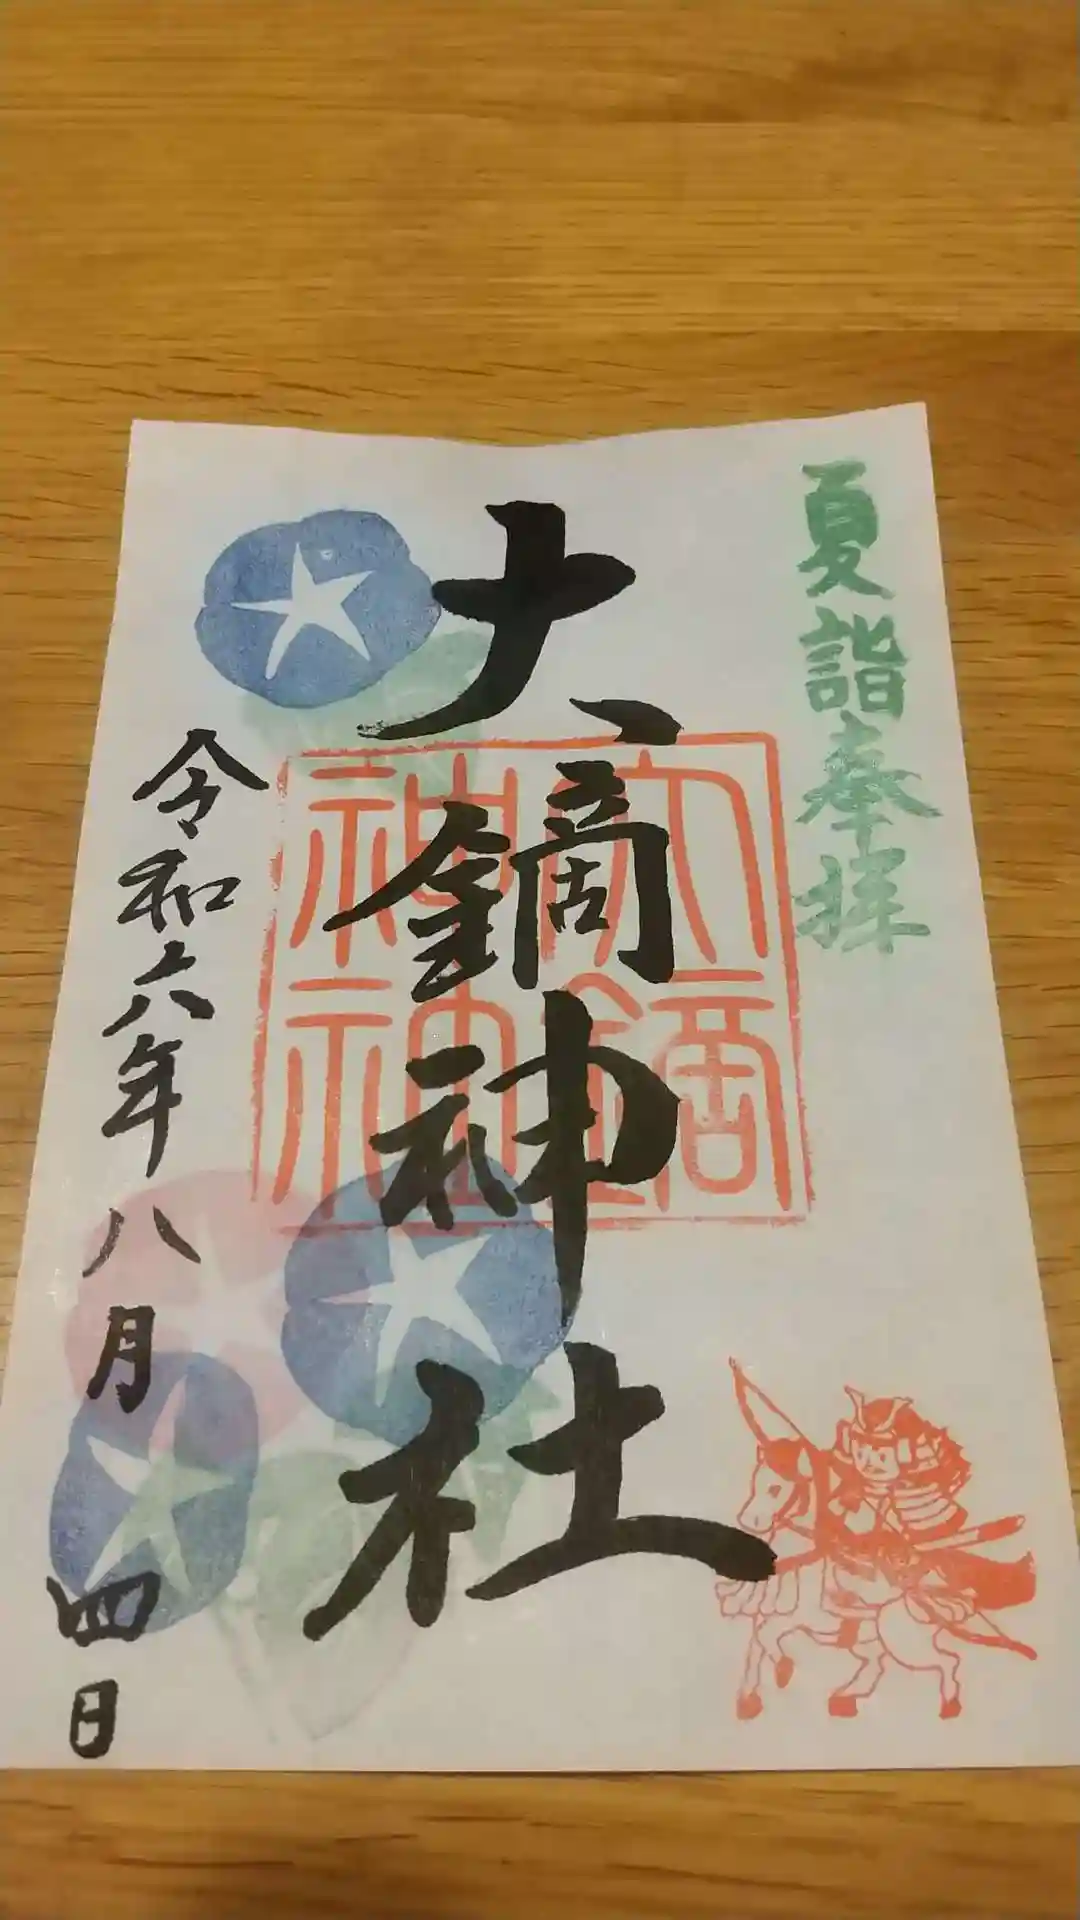 夏詣奉拝
大鏑神社
大鏑神社
令和六年八月四日